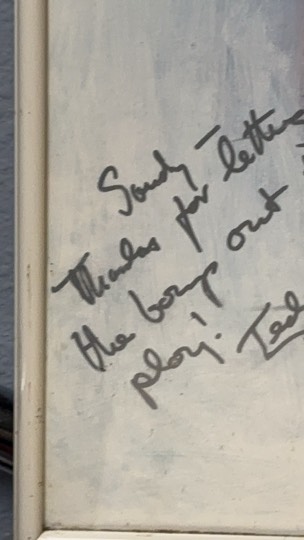 Sandy -
Thanks for letting
the boys out
play! Ted